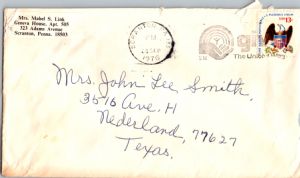 Mrs. Mabel S. Link
Geneva House. Apt. 505
323 Adams Avenue
Scranton, Penna. 18503
SCRANTON
PM
SEP
1976
The United Way
13c
Mrs. John Lee Smith.
3516 Ave. H
Nederland, 77627
Texas.